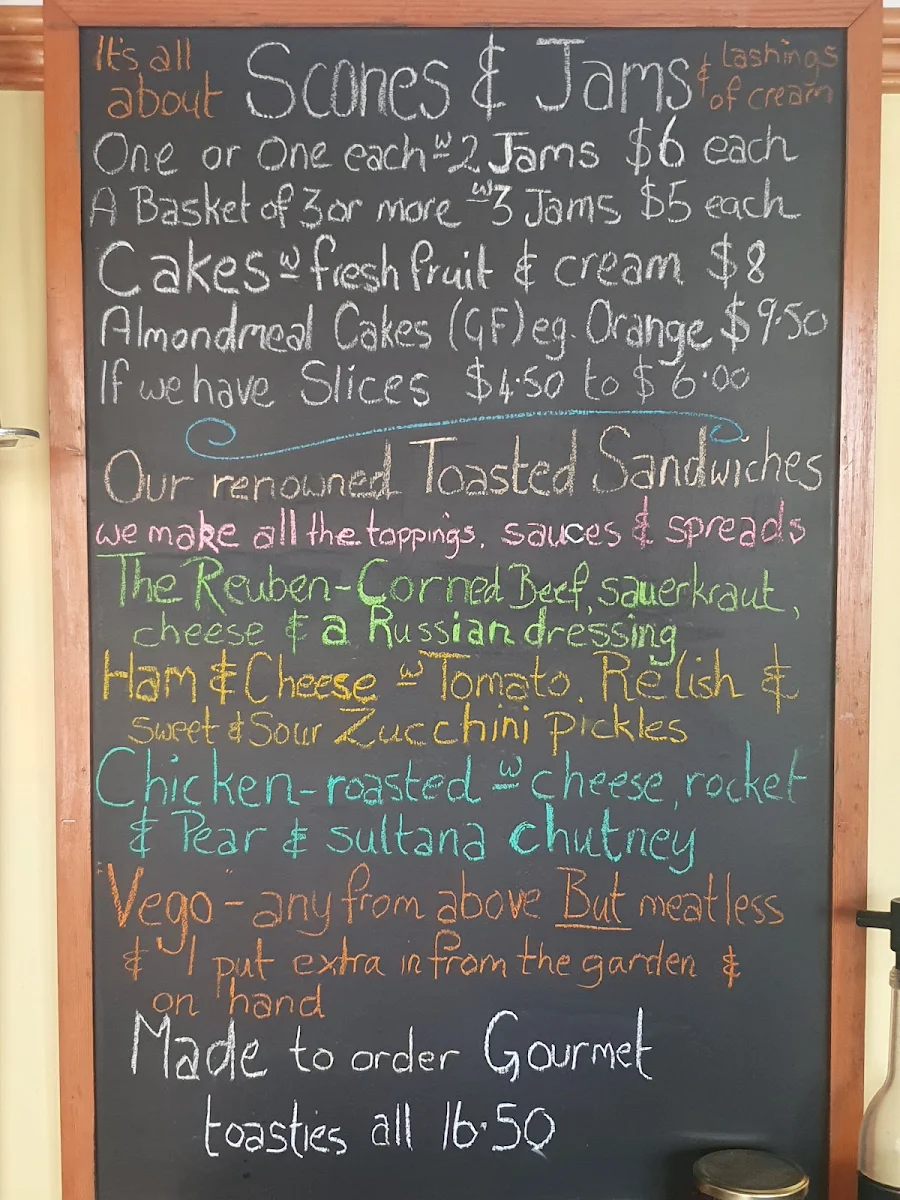 It's all about Scones & Jams & lashings of cream
One or One each w 2 Jams $6 each
A Basket of 3 or more w 3 Jams $5 each
Cakes w fresh fruit & cream $8
Almondmeal Cakes (GF) eg. Orange $9.50
If we have Slices $4.50 to $6.00
Our renowned Toasted Sandwiches
we make all the toppings, sauces & spreads
The Reuben-Corned Beef, sauerkraut,
cheese & a Russian dressing
Ham & Cheese w Tomato, Relish &
sweet & Sour Zucchini pickles
Chicken-roasted w cheese, rocket
& Pear & sultana chutney
"Vego" - any from above But meatless
& I put extra in from the garden &
on hand
Made to order Gourmet
toasties all 16.50